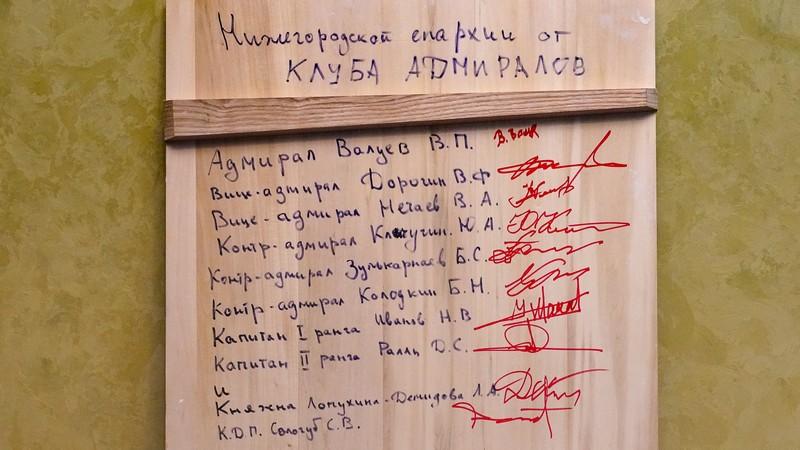 Нижегородской епархии от
КЛУБА АДМИРАЛОВ
Адмирал Валуев В.П.
Вице-адмирал Дорогин В.Ф
Вице-адмирал Нечаев В.А.
Контр-адмирал Ю.А.
Контр-адмирал Зулькарнаев Б.С.
Контр-адмирал Колодкин Б.Н.
Капитан I ранга Иванов Н.В
Капитан II ранга Ралли Д.С.
и
Княжна Лопухина-Демидова Л.А.
К.Д.П. Сологуб С.В.